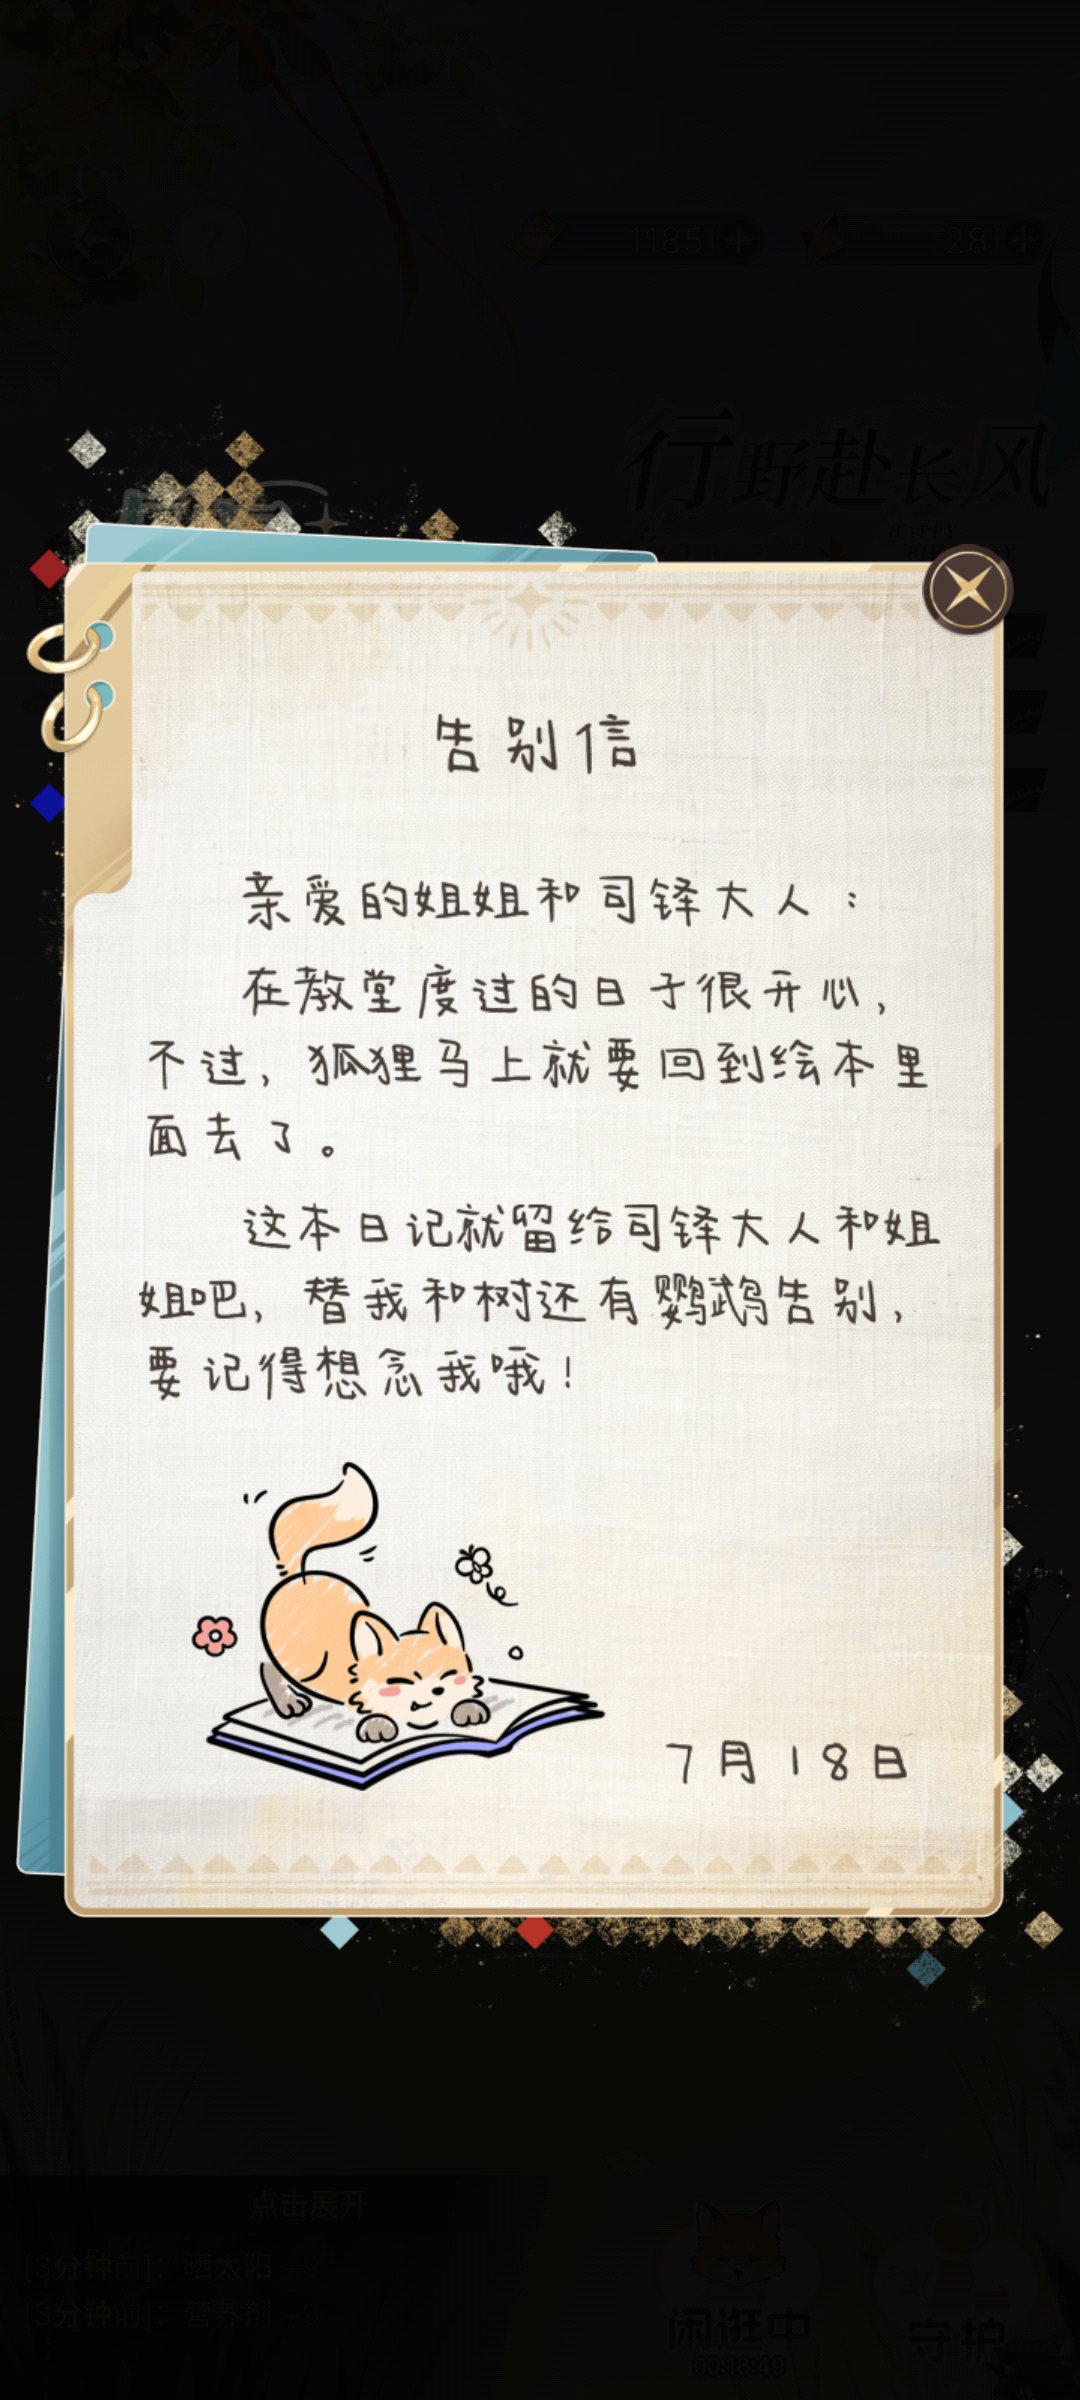 1185
28
行野赴长风
HAPPY
告别信
亲爱的姐姐和司铎大人：
在教堂度过的日子很开心，
不过，狐狸马上就要回到绘本里
面去了。
这本日记就留给司铎大人和姐
姐吧，替我和树还有鹦鹉告别，
要记得想念我哦！
7月18日
点击展开
[3分钟前]：晒太阳 +9
[3分钟前]：营养剂 +9
闲逛中
00:16:49
守护